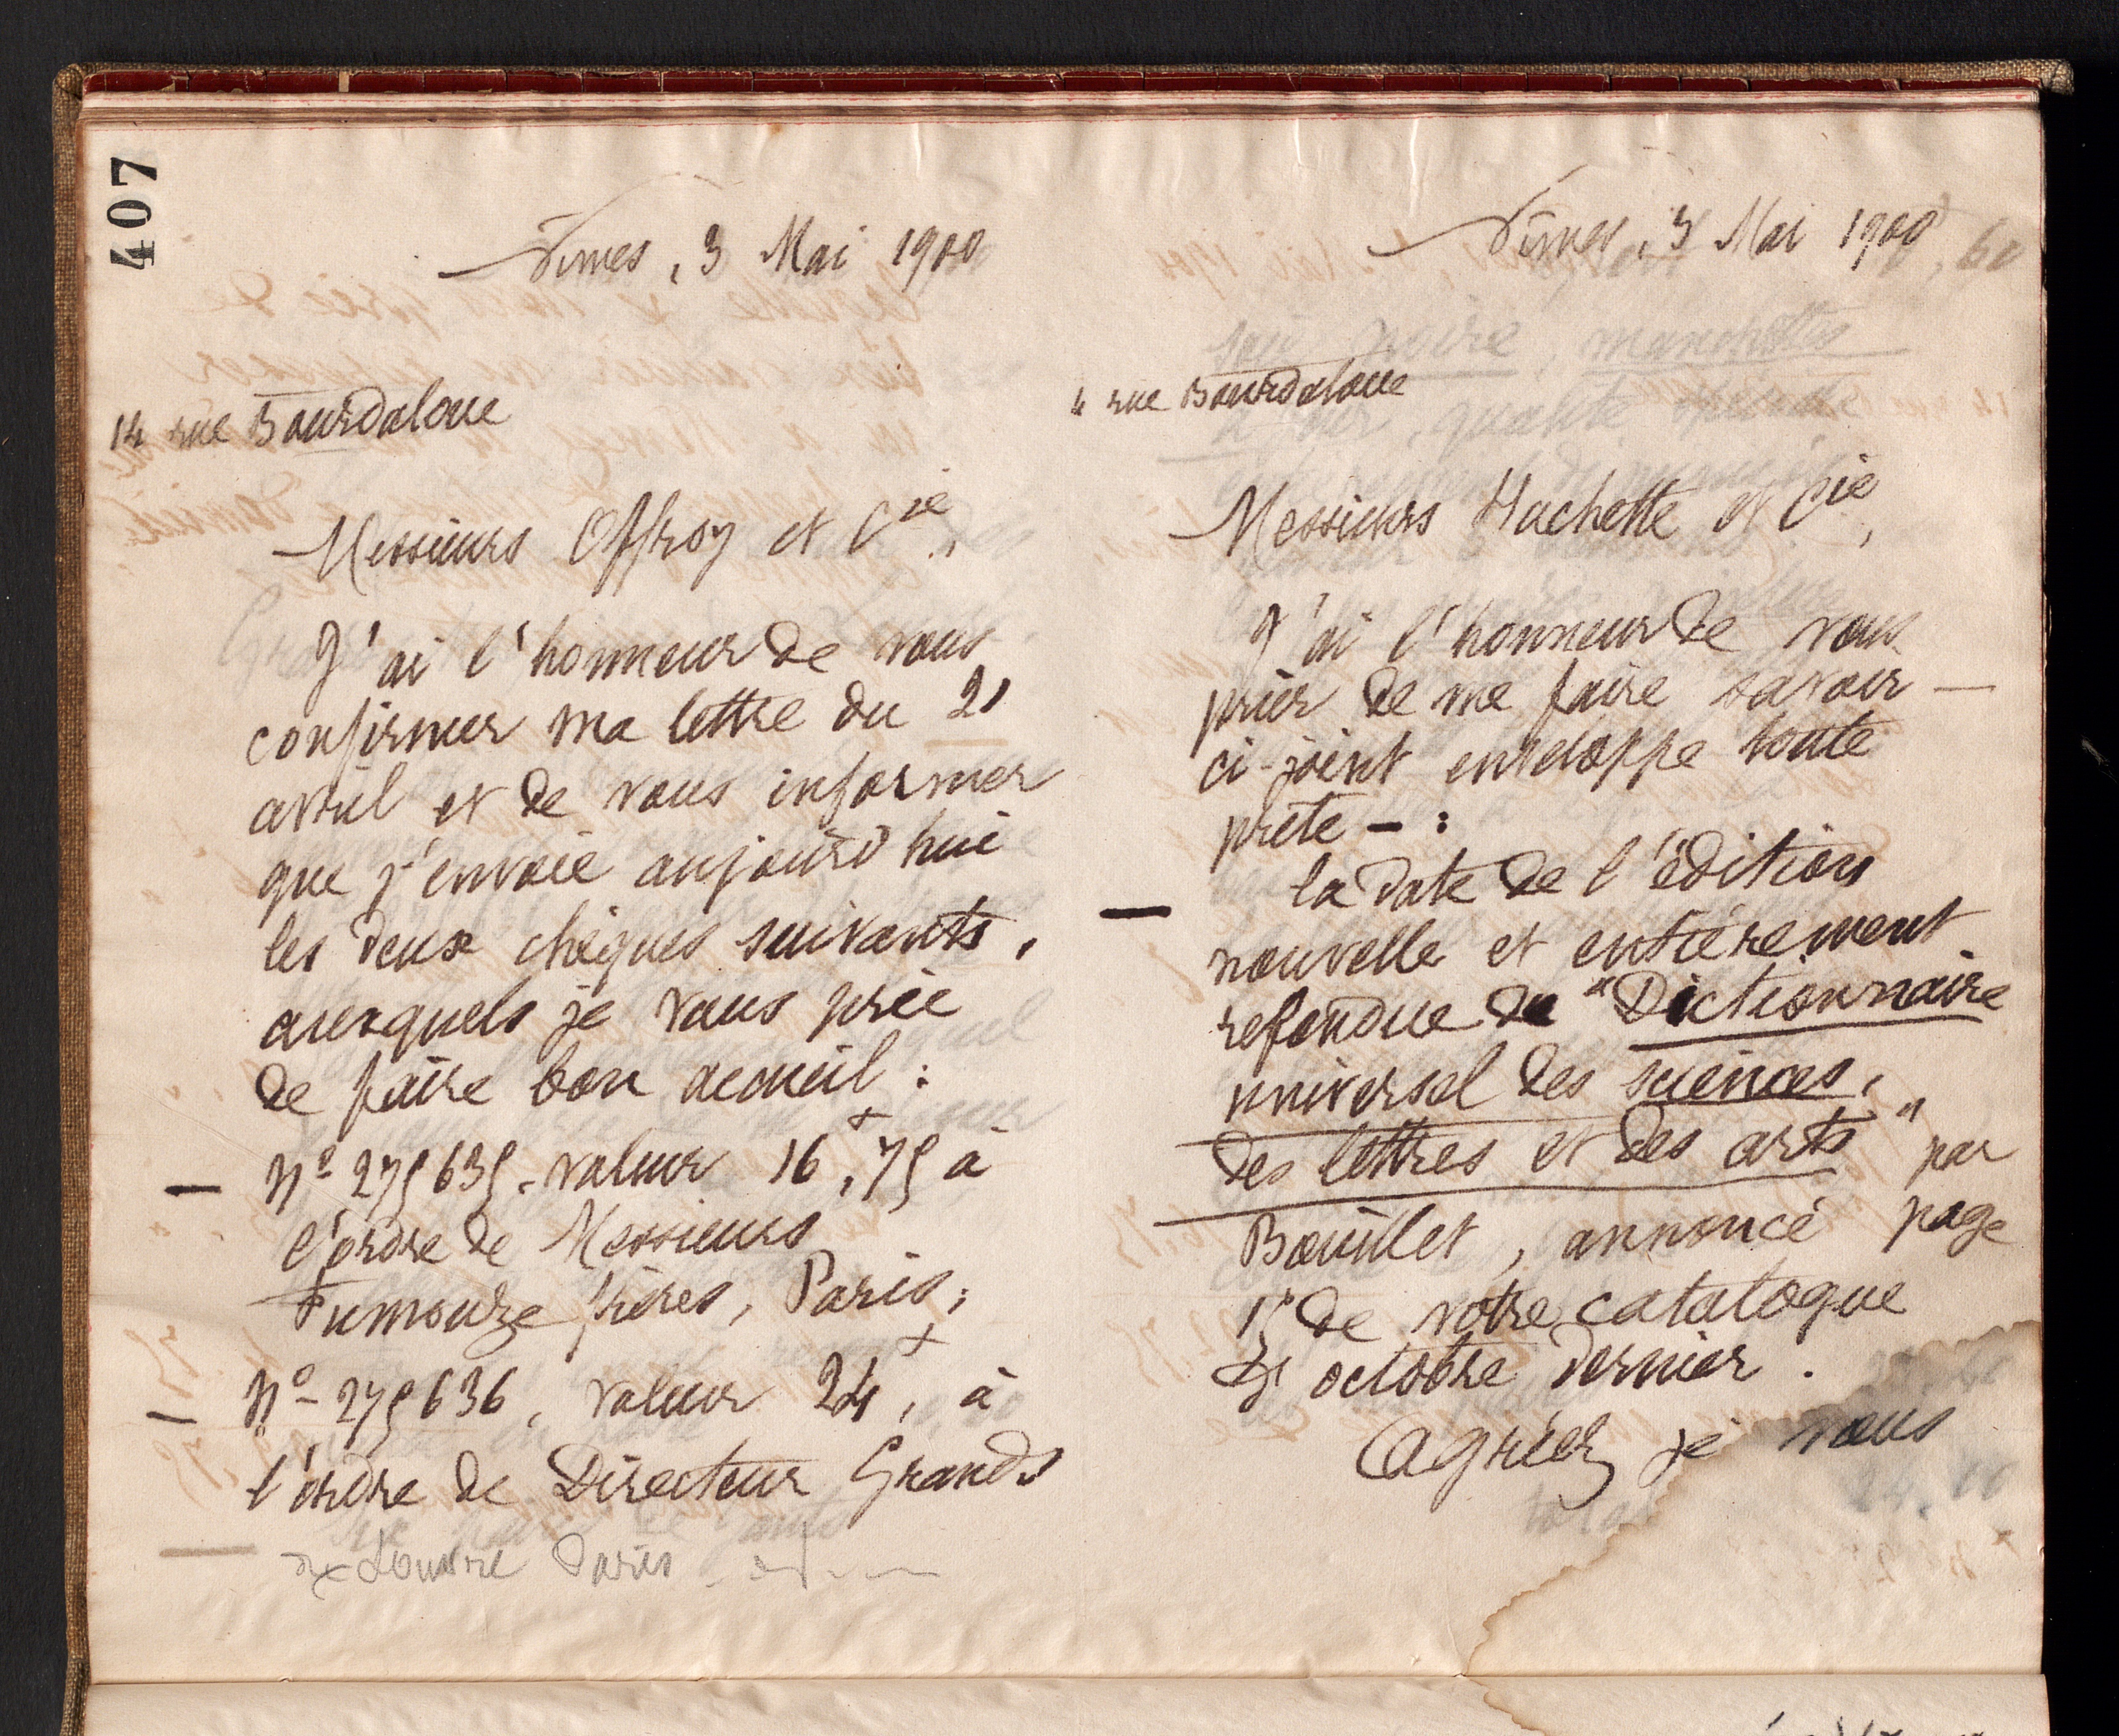 407
Nîmes, 3 Mai 1900
14 rue Bourdaloue
Messieurs Offroy et Cie,
J'ai l'honneur de vous
confirmer ma lettre du 21
avril et de vous informer
que j'envoie aujourd'hui
les deux chèques suivants,
auxquels je vous prie
de faire bon accueil :
— No 275635, valeur 16,75 à
l'ordre de Messieurs
Fumouze frères, Paris ;
— No 275636, valeur 24, à
l'ordre de Directeur Grands
Louvre Paris
Nîmes, 3 Mai 1900
rue Bourdaloue
Messieurs Hachette et Cie,
J'ai l'honneur de vous
prier de me faire savoir —
ci-joint enveloppe toute
prête — :
— la date de l'édition
nouvelle et entièrement
refondue du "Dictionnaire
universel des sciences,
des lettres et des arts" par
Bouillet, annoncé page
15 de votre catalogue
octobre dernier.
Agréez je vous